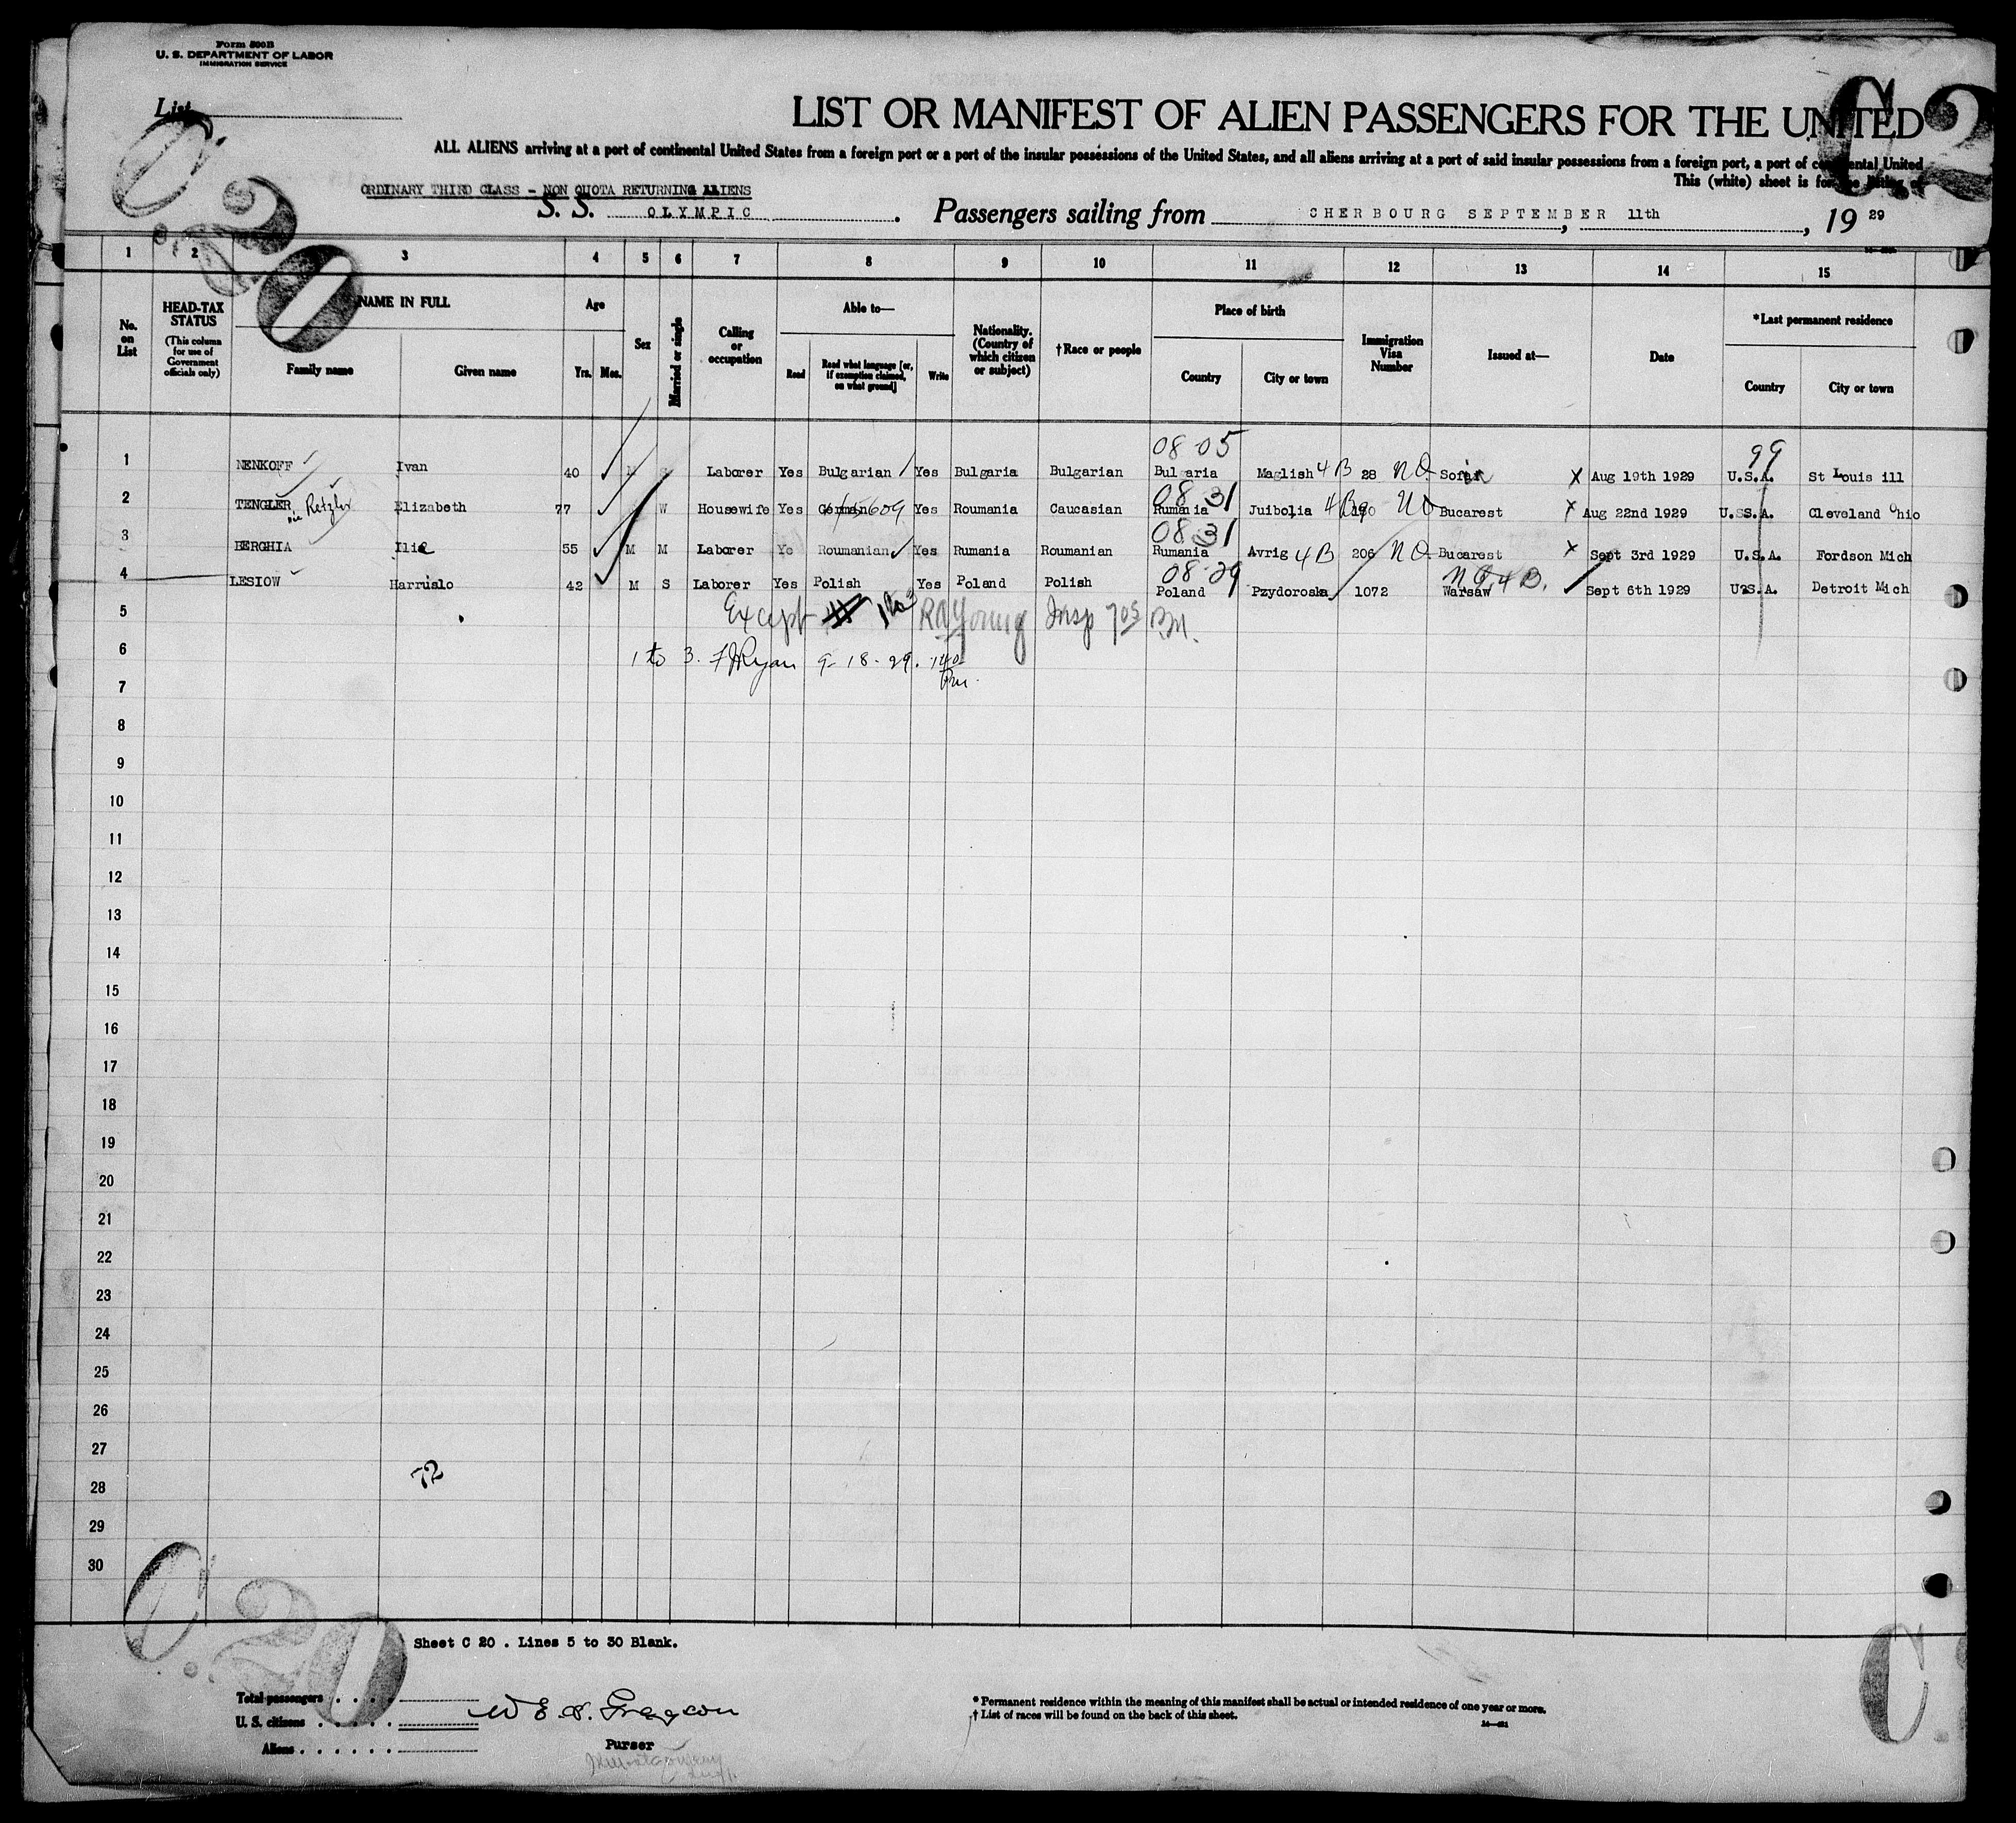 Form 500B
U. S. DEPARTMENT OF LABOR
IMMIGRATION SERVICE
List
C 20
C 2
LIST OR MANIFEST OF ALIEN PASSENGERS FOR THE UNITED
ALL ALIENS arriving at a port of continental United States from a foreign port or a port of the insular possessions of the United States, and all aliens arriving at a port of said insular possessions from a foreign port, a port of continental United
This (white) sheet is for the listing of
ORDINARY THIRD CLASS - NON QUOTA RETURNING ALIENS
S. S. OLYMPIC. Passengers sailing from CHERBOURG SEPTEMBER 11th, 1929
1 2 3 4 5 6 7 8 9 10 11 12 13 14 15
No. on List
HEAD-TAX STATUS (This column for use of Government officials only)
NAME IN FULL
Family name Given name
Age
Yrs. Mos.
Sex
Married or single
Calling or occupation
Able to—
Read Read what language [or, if exemption claimed, on what ground] Write
Nationality. (Country of which citizen or subject)
†Race or people
Place of birth
Country City or town
Immigration Visa Number
Issued at—
Date
*Last permanent residence
Country City or town
08 05 99
1 NENKOFF Ivan 40 M S Laborer Yes Bulgarian Yes Bulgaria Bulgarian Bulgaria Maglish 4B 28 NQ Sofia X Aug 19th 1929 U.S.A. St Louis ill
08 31
2 TENGLER Retzler Elizabeth 77 W Housewife Yes German Yes Roumania Caucasian Rumania Juibolia 4B 190 Bucarest X Aug 22nd 1929 U.S.A. Cleveland Ohio
08 31
3 BERGHIA Ilie 55 M M Laborer Ye Roumanian Yes Rumania Roumanian Rumania Avrig 4B 206 NQ Bucarest X Sept 3rd 1929 U.S.A. Fordson Mich
08 29 NQ 4B.
4 LESIOW Harruslo 42 M S Laborer Yes Polish Yes Poland Polish Poland Pzydoroska 1072 Warsaw Sept 6th 1929 U.S.A. Detroit Mich
5 Except 1 to 3 RA Young Insp 705 P.M.
6 1 to 3. FJ Ryan 9-18-29. 140 Pm.
7
8
9
10
11
12
13
14
15
16
17
18
19
20
21
22
23
24
25
26
27
72
28
29
30
C. 20
C.
Sheet C 20 . Lines 5 to 30 Blank.
Total passengers . . . .
U. S. citizens . . . . .
Aliens . . . . . .
Purser
* Permanent residence within the meaning of this manifest shall be actual or intended residence of one year or more.
† List of races will be found on the back of this sheet.